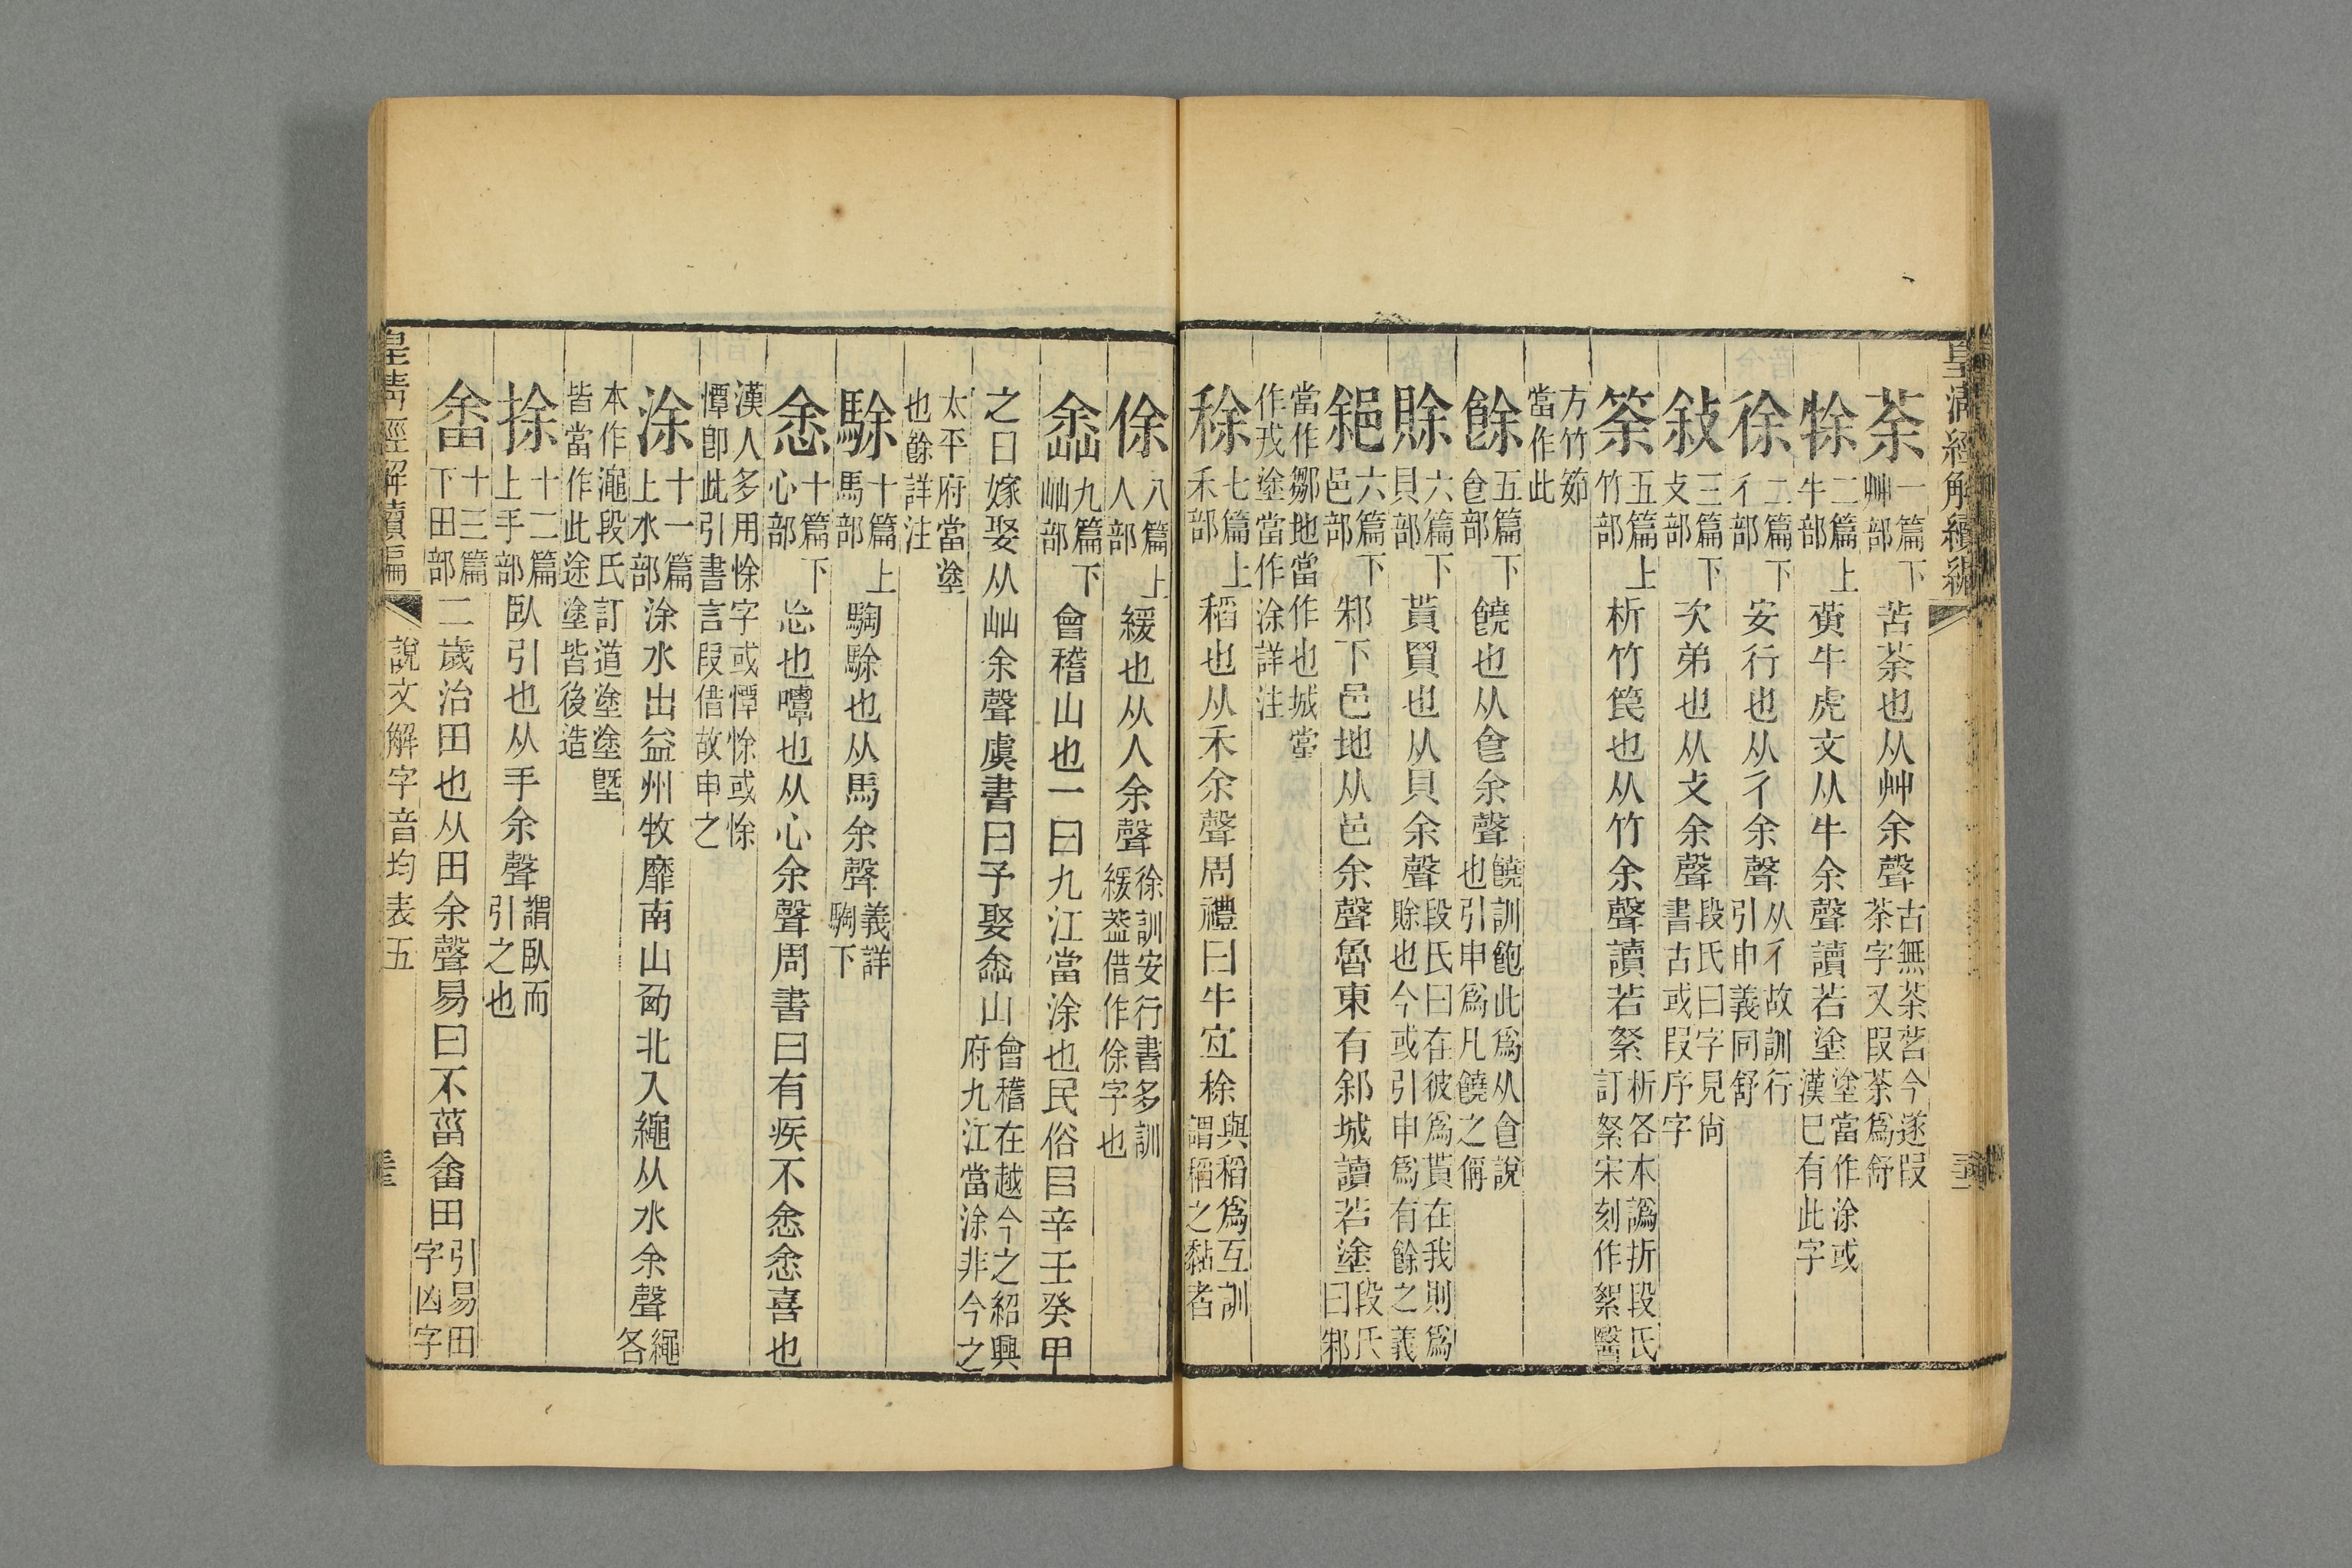 皇清經解續編
荼一篇下艸部苦荼也从艸余聲古無茶茗今遂叚荼字又叚荼爲舒
悇二篇上牛部黃牛虎文从牛余聲讀若塗塗當作涂或漢巳有此字
徐二篇下彳部安行也从彳余聲从彳故訓行引申義同舒
敍三篇下攴部次弟也从攴余聲段氏曰字見尙書古或叚序字
筡五篇上竹部析竹笢也从竹余聲讀若絮析各本譌折段氏訂絮宋刻作絮醫
方竹筎當作此
餘五篇下𠊊部饒也从𠊊余聲饒訓飽此爲从𠊊說也引申爲凡饒之偁
賖六篇下貝部貰買也从貝余聲段氏曰在彼爲貰在我則爲賖也今或引申爲有餘之義
䣄六篇下邑部邾下邑地从邑余聲魯東有䣄城讀若塗段氏曰邾
當作鄒地當作也城當作戎塗當作涂詳注
稌七篇上禾部稻也从禾余聲周禮曰牛宐稌與稻爲互訓謂稻之黏者
俆八篇上人部緩也从人余聲徐訓安行書多訓緩葢借作俆字也
嵞九篇下屾部會稽山也一曰九江當涂也民俗㠯辛壬癸甲
之日嫁娶从屾余聲虞書曰予娶嵞山會稽在越今之紹興府九江當涂非今之
太平府當塗也餘詳注
駼十篇上馬部騊駼也从馬余聲義詳騊下
悆十篇下心部忘也嘾也从心余聲周書曰有疾不悆悆喜也
漢人多用悇字或憛悇或悇憛卽此引書言叚借故申之
涂十一篇上水部涂水出益州牧靡南山西北入繩从水余聲繩各
本作澠段氏訂道塗塗塈皆當作此途塗皆後造
捈十二篇上手部臥引也从手余聲謂臥而引之也
畬十三篇下田部二歲治田也从田余聲易曰不菑畬田引易田字凶字
皇清經解續編 說文解字音均表五